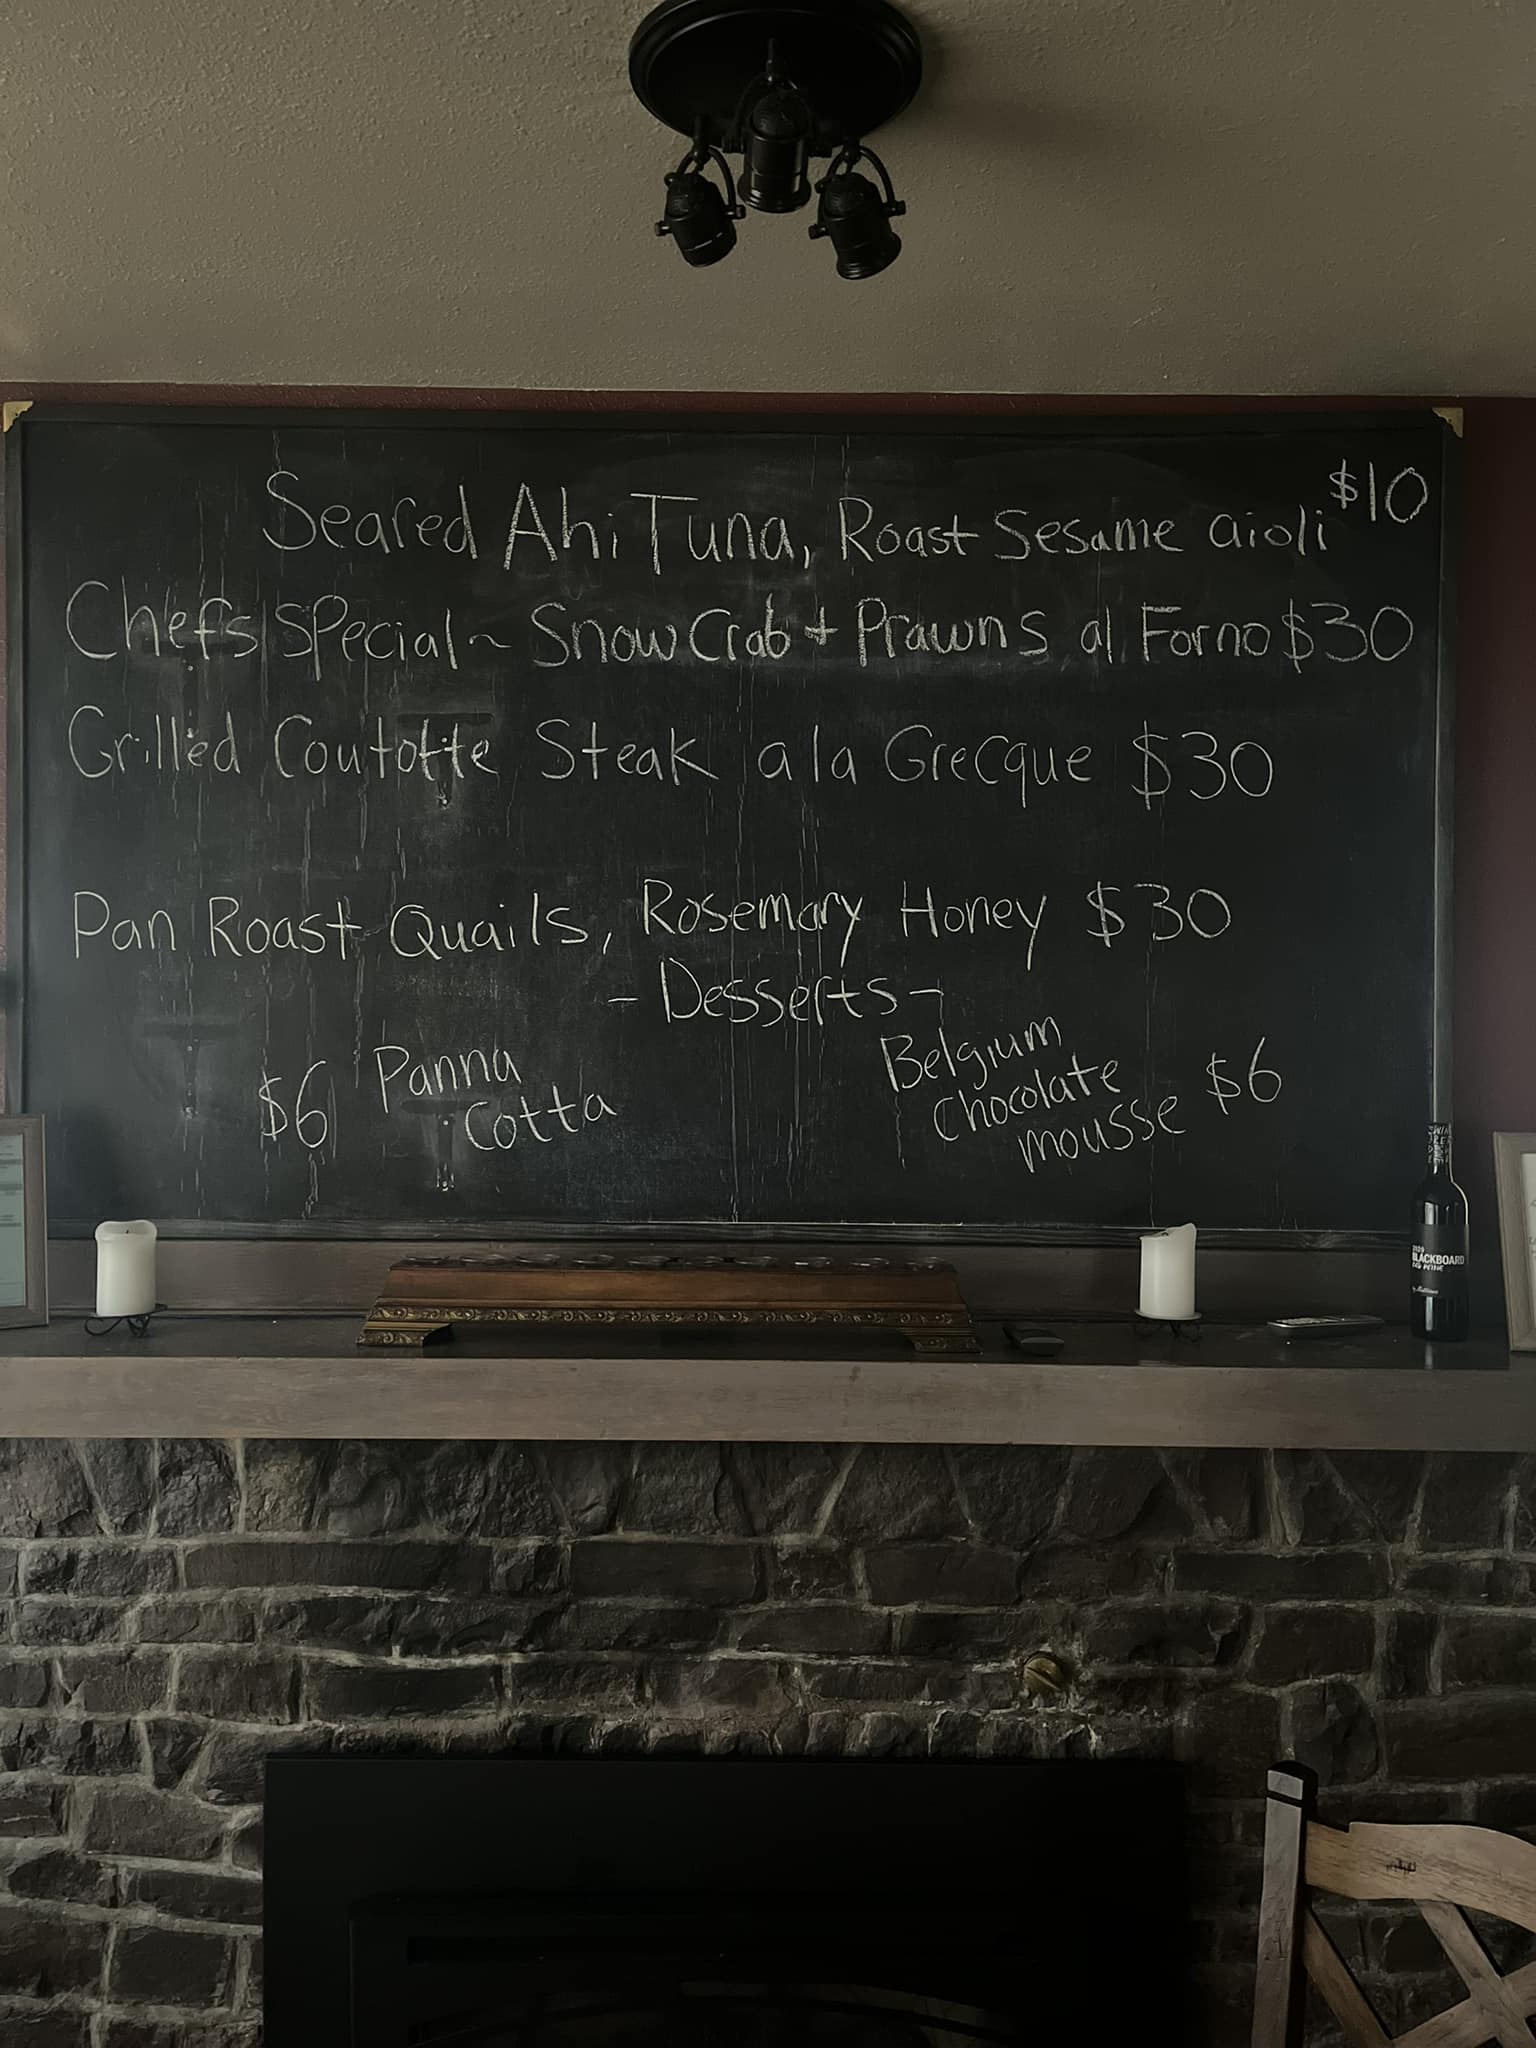 Seared Ahi Tuna, Roast Sesame aioli $10
Chefs Special ~ Snow Crab + Prawns al Forno $30
Grilled Coutotte Steak a la Grecque $30
Pan Roast Quails, Rosemary Honey $30
- Desserts -
$6 Panna
Cotta
Belgium
Chocolate
mousse $6
BLACKBOARD